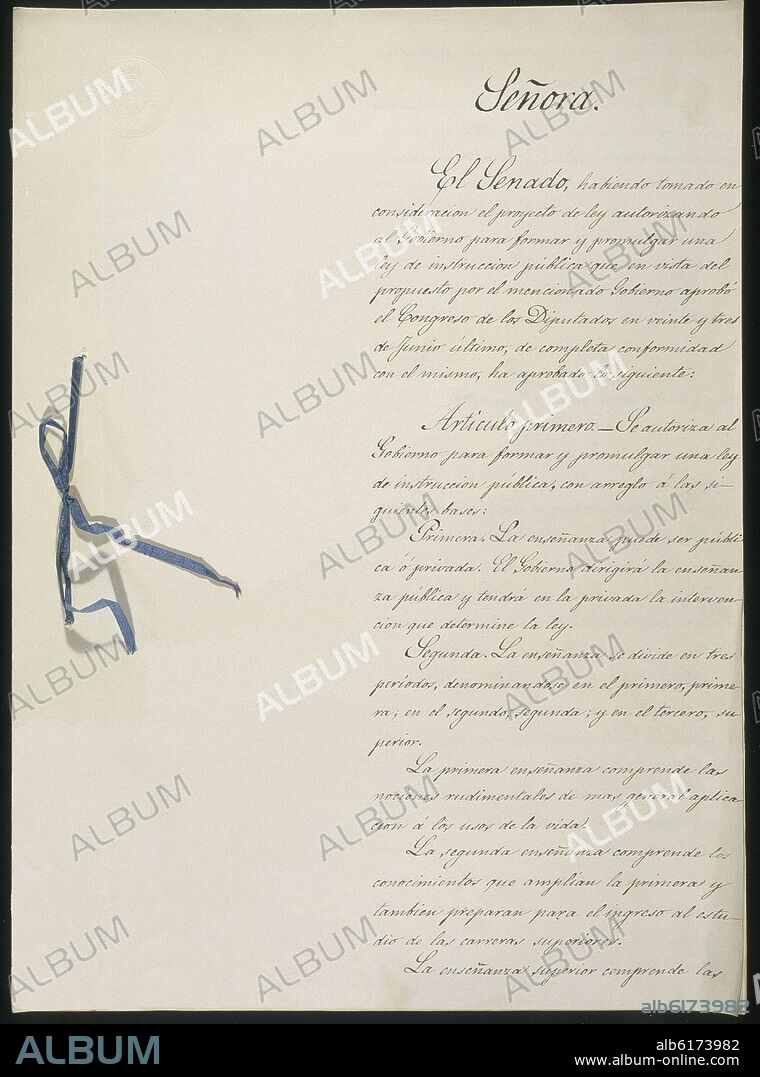 Señora.
El Senado, habiendo tomado en
consideracion el proyecto de ley autorizando
al Gobierno para formar y promulgar una
ley de instruccion pública que en vista del
propuesto por el mencionado Gobierno aprobó
el Congreso de los Diputados en veinte y tres
de Junio último, de completa conformidad
con el mismo, ha aprobado lo siguiente:
Artículo primero.—Se autoriza al
Gobierno para formar y promulgar una ley
de instruccion pública, con arreglo á las si-
guientes bases:
Primera. La enseñanza puede ser públi-
ca ó privada. El Gobierno dirigirá la enseñan-
za pública y tendrá en la privada la interven-
cion que determine la ley.
Segunda. La enseñanza se divide en tres
períodos, denominandose en el primero, prime-
ra; en el segundo, segunda; y en el tercero, su-
perior.
La primera enseñanza comprende las
nociones rudimentales de mas general aplica-
cion á los usos de la vida.
La segunda enseñanza comprende los
conocimientos que amplían la primera y
tambien preparan para el ingreso al estu-
dio de las carreras superiores.
La enseñanza superior comprende las
alb6173982
ALBUM
alb6173982
www.album-online.com